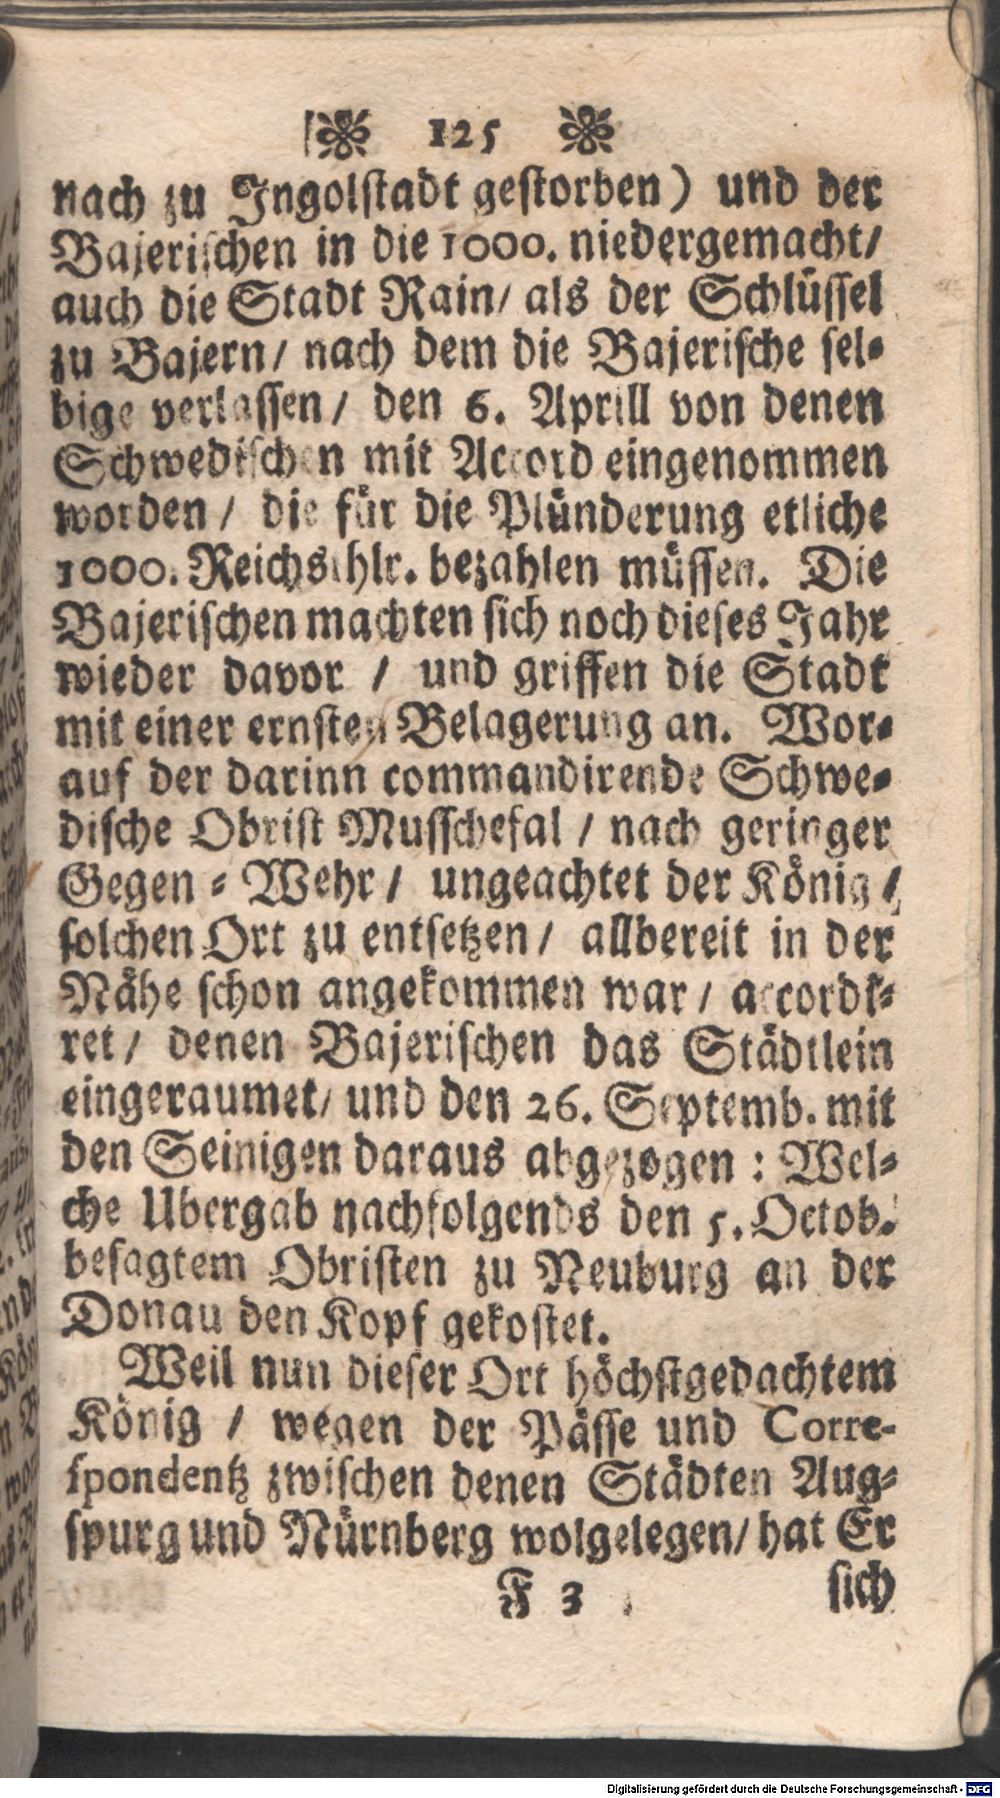 125
nach zu Ingolstadt gestorben) und der
Bajerischen in die 1000. niedergemacht/
auch die Stadt Rain/ als der Schlüssel
zu Bajern/ nach dem die Bajerische sel-
bige verlassen/ den 6. Aprill von denen
Schwedischen mit Accord eingenommen
worden / die für die Plünderung etliche
1000. Reichsthlr. bezahlen müssen. Die
Bajerischen machten sich noch dieses Jahr
wieder davor / und griffen die Stadt
mit einer ernsten Belagerung an. Wor-
auf der darinn commandirende Schwe-
dische Obrist Musschefal / nach geringer
Gegen-Wehr / ungeachtet der König /
solchen Ort zu entsetzen / allbereit in der
Nähe schon angekommen war / accordi-
ret / denen Bajerischen das Städtlein
eingeraumet/ und den 26. Septemb. mit
den Seinigen daraus abgezogen : Wel-
che Ubergab nachfolgends den 5. Octob.
besagtem Obristen zu Neuburg an der
Donau den Kopf gekostet.
Weil nun dieser Ort höchstgedachtem
König / wegen der Pässe und Corre-
spondentz zwischen denen Städten Aug-
spurg und Nürnberg wolgelegen/ hat Er
F 3 sich
Digitalisierung gefördert durch die Deutsche Forschungsgemeinschaft - DFG